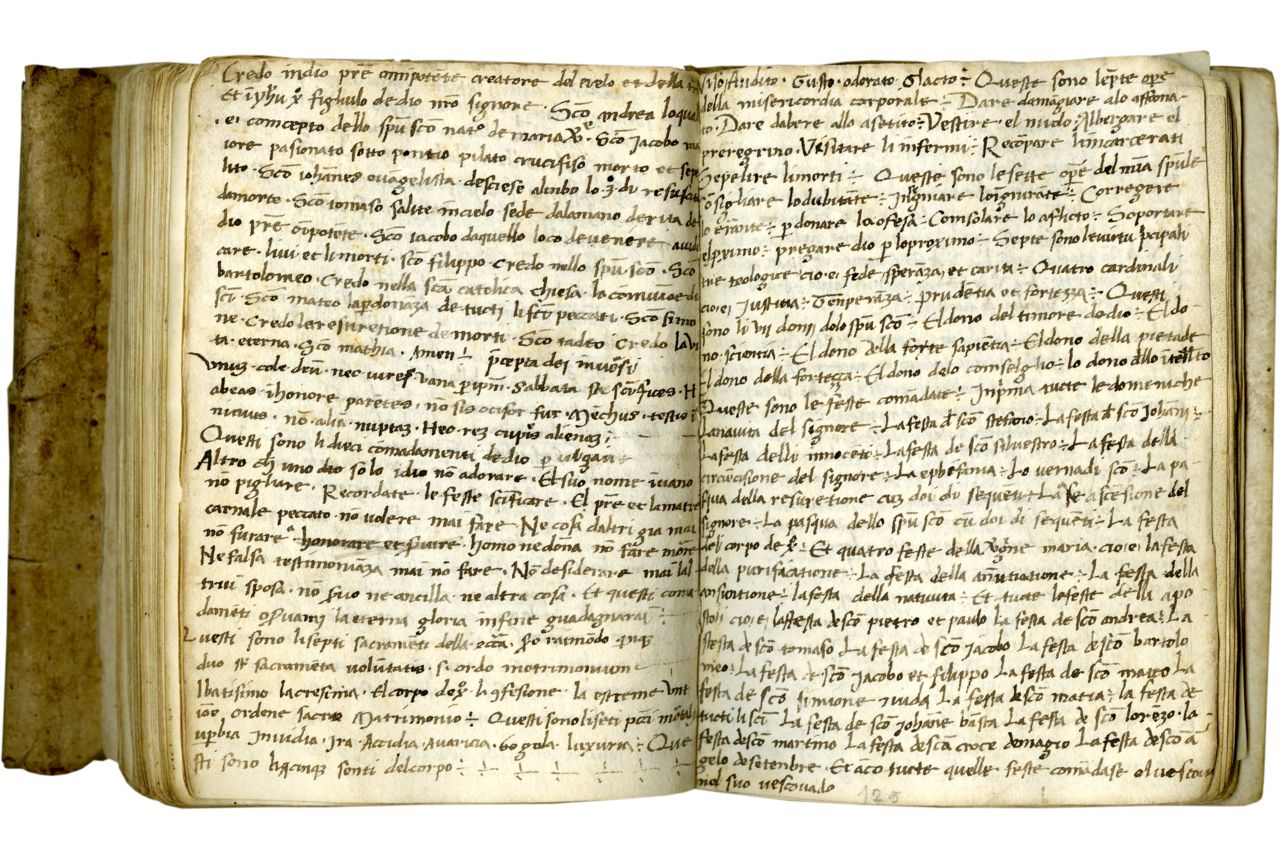 Credo indio prē omipotēte creatore del cielo et della
Et īyh̄u xp̄o figliulo de dio nrō signore · Scō andrea loqua
· ei comcepto dello spū scō nat° de maria · Scō Jacobo ma
iore pasionato sotto pontio pilato crucifiso morto et sepe
lito · Scō iohānes evagelista · desciese alimbo lo 3° di resuscita
damorte · Scō tomaso salite incielo sede dalamano derita de
dio prē oīpotēte · Scō iacobo daquello loco devenere
care · livivi et li morti · scō filippo · credo nello spū scō · Scō
bartolomeo · Credo nella scā catolica chiesa · la comuīoe di
scī · Scō mateo la perdonāza de tucti li peccati · Scō simo
ne · Credo la resuretione de morti · Scō tadeo Credo la vi
ta eterna · Scō mathia · Amen ÷ p̄cepta dei
Unuz cole deū · nec iures vana per ipm̄ · Sabbata scīfices · H
abeas · ihonore parētes · nō sis ocisor fur Mechus · testis i
nicuus · nō alia nuptaz · Heo rez cupis alienaz
Questi sono li dieci comādamenti de dio p̄ vulgari
Altro ch̄ uno dio solo idio nō adorare · El suo nome ivano
nō pigliare · Recordate · le feste scīficare · El prē et la matre
carnale peccato · nō volere mai fare · Ne cosa daltri gia mai
nō furare honorare et servire · homo ne dōna nō fare morire
Ne falsa testimoniāza mai nō fare · Nō desiderare mai lal
trui sposa · nō servo ne ancilla · ne altra cosa · Et questi coma
damēti oservami la eterna gloria infine guadagnarai ÷
Questi sono li septi sacramēti della · raimōdo quinque
duo sacramēta volūtatis · ordo motrimonium
lbatisimo la cresima · El corpo de xp̄o · la estreme Unt
ioē ordene sacro Matrimonio ÷ Questi sono li seti mortali
uperbia Invidia · Ira · Acidia · Avaricia · gola · luxuria ÷ Que
sti sono li cinque senti del corpo ÷ ÷ ÷ ÷ ÷ ÷ ÷
Audito · Gusto · odorato · Tacto ÷ Queste sono le septe opē
della misericordia corporale ÷ Dare damāgiare alo affama
to · Dare dabere allo asetito ÷ Vestire · el nudo · Albergare el
preregrino · Visitare li infermi ÷ Recōpare limcarcerati
Sepelire limorti ÷ Queste sono le sette opē del mīa spūle
cōsigliare lo dubitāte ÷ Insigniare lo ignurāte ÷ Corregere
lo errante ÷ p̄donare la ofesa · Comsolare lo aflicto ÷ Soportare
el primo ÷ pregare dio p̄ lo proximo ÷ Septe sono le virtu p̄cipali
tre teologice cio ei fede sperāza et carita ÷ Quatro cardinali
cio ei Justitia ÷ Tēmperāza ÷ prudētia et fortezza ÷ Questi
sono li vii doni dolo spū scō ÷ El dono del timore de dio ÷ El do
no · scientia ÷ El dono della forte sapiētia ÷ El dono della pietade
El dono della fortezza ÷ El dono delo comseiglio ÷ lo dono dello itelleto
Queste sono le feste comādate ÷ Inprima tucte le domeniche
La natvita del signore ÷ La festa de scō stefano ÷ La festa de scō Johāni ÷
La festa delli innocēti ÷ La festa de scō silvestro ÷ La festa della
circūcisione del signore ÷ La epbefania ÷ Lo vernadi scō ÷ La pa
squa della resuretione cuz doi di sequeti ÷ La ascēsione del
signore ÷ La pasqua dello spū scō cū doi di sequēti ÷ La festa
del corpo de xp̄o ÷ Et quatro feste della vergine maria · cio ei la festa
della purifacatione ÷ La festa della anūtiatione ÷ La festa della
asuntione ÷ la festa della natiuita ÷ Et tucte le feste della apo
stoli cio ei la festa de scō pietro et paulo La festa de scō andrea ÷ La
festa de scō tomaso La festa de scō Jacobo La festa de scō bartolo
meo ÷ La festa de scō Jacobo et filippo La festa de scō mateo La
festa de scō simione Juda La festa de scō matia ÷ la festa de
tucti li scī La festa de scō Johane batista La festa de scō lorēzo · la
festa de scō martino La festa de scā croce de magio La festa de scō ā
gelo de setenbre · Et āco tucte quelle feste comādase el vescovo
nel suo vescovado
125